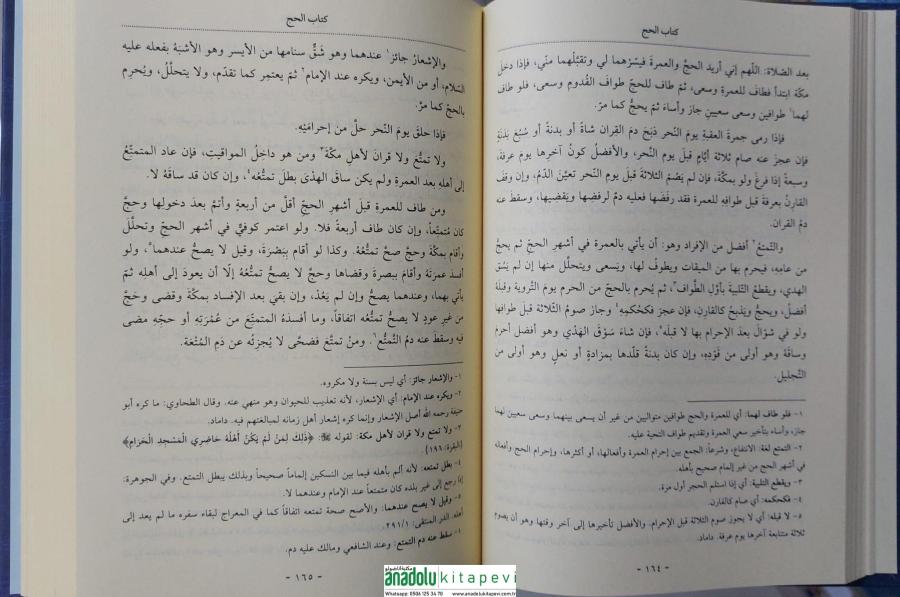 كتاب الحج
بعد الصّلاة: اللّهم إني أريد الحجّ والعمرة فيسّرهما لي وتقبّلهما منّي، فإذا دخل
مكّة ابتدأ فطافَ للعمرة وسعى، ثمّ طاف للحجّ طواف القُدوم وسعى، فلو طاف
لهما١ طوافين وسعى سعيين جاز وأساءَ ثمّ يحجُّ كما مرّ.
فإذا رمى جمرةَ العقبةِ يومَ النّحر ذبَحَ دمَ القِران شاةً أو بدنةً أو سُبُعَ بَدَنَةٍ
فإن عجزَ عنه صام ثلاثةَ أيّامٍ قبلَ يوم النّحر، والأفضلُ كونُ آخرِها يومَ عرفةَ،
وسبعةً إذا فرغَ ولو بمكّةَ، فإن لم يَصُمْ الثّلاثةَ قبلَ يوم النّحر تعيّن الدّمُ، وإن وقفَ
القارنُ بعرفةَ قبل طوافِه للعمرة فقد رفَضَها فعليه دمٌ لرفضها ويَقضيها، وسقطَ عنه
دمُ القران.
والتّمتعُ٢ أفضل من الإفراد وهو: أن يأتي بالعمرة في أشهر الحجّ ثم يحجَّ
من عامِه، فيحرم بها من الميقات ويطوفَ لها، ويَسعى ويتحلّل منها إن لم يَسُق
الهدي، ويقطعُ التّلبيةَ بأوّلِ الطّواف٣، ثم يُحرم بالحجّ من الحرم يومَ التّروية وقبلَهُ
أفضلُ، ويحجُّ ويَذبحُ كالقارنِ، فإن عجزَ فكحُكمِه٤ وجازَ صومُ الثّلاثة قبل طوافِها
ولو في شوّالٍ بعدَ الإحرام بها لا قبلَه٥، فإن شاءَ سَوْقَ الهَدْي وهو أفضل أحرمَ
وساقَهُ وهو أولى من قَوْدِهِ، وإن كان بدنةً قلّدها بمزادةٍ أو نعلٍ وهو أولى من
التّجليل.
١- فلو طاف لهما: أي للعمرة والحج طوافين متواليين من غير أن يسعى بينهما وسعى سعيين لهما
جاز، وأساء بتأخير سعي العمرة وتقديم طواف التحية عليه.
٢- التمتع لغة: الانتفاع، وشرعاً: الجمع بين إحرام العمرة وأفعالها، أو أكثرها، وإحرام الحج وأفعاله
في أشهر الحج من غير إلمام صحيح بأهله.
٣- ويقطع التلبية: أي إذا استلم الحجر أول مرة.
٤- فكحكمه: أي صام كالقارن.
٥- لا قبله: أي لا يجوز صوم الثلاثة قبل الإحرام، والأفضل تأخيرها إلى آخر وقتها وهو أن يصوم
ثلاثة متتابعة آخرها يوم عرفة. داماد.
- ١٦٤ -
كتاب الحج
والإشعارُ جائز١ عندهما وهو شَقُّ سنامها من الأيسر وهو الأشبَهُ بفعله عليه
السّلام، أو من الأيمن، ويكره عند الإمام٢ ثمّ يعتمر كما تقدّم، ولا يتحلّلُ، ويُحرِم
بالحجّ كما مرّ.
فإذا حلقَ يومَ النّحر حلَّ من إحرامَيْهِ.
ولا تمتُّعَ ولا قرانَ لأهل مكّةَ٣ ومن هو داخِلُ المواقيتِ، فإن عاد المتمتّعُ
إلى أهله بعد العمرةِ ولم يكن ساقَ الهدْيَ بطلَ تمتُّعه٤، وإن كان قد ساقَهُ لا.
ومن طاف للعمرةِ قبلَ أشهرِ الحجّ أقلَّ من أربعةٍ وأتمَّ بعدَ دخولها وحجَّ
كان مُتمتّعاً، وإن كان طاف أربعةً فلا. ولو اعتمر كوفيٌّ في أشهر الحجّ وتحلّل
وأقام بمكّةَ وحجّ صحَّ تمتُّعُهُ. وكذا لو أقام ببَصْرَةَ، وقيل لا يصحُّ عندهما٥، ولو
أفسدَ عمرَتَه وأقامَ ببصرةَ وقضاها وحجَّ لا يصحُّ تمتُّعُهُ إلّا أن يعودَ إلى أهلِهِ ثمّ
يأتي بهما، وعندهما يصحُّ وإن لم يَعُدْ، وإن بقيَ بعد الإفساد بمكّةَ وقضى وحَجَّ
من غيرِ عودٍ لا يصحُّ تمتُّعه اتفاقاً، وما أفسدَهُ المتمتّع من عُمْرَتِهِ أو حجّهِ مضى
فيه وسقطَ عنه دمُ التّمتُّع٦. ومنْ تمتّعَ فضحّى لا يُجزئُه عن دَمِ المُتْعَة.
١- والإشعار جائز: أي ليس بسنة ولا مكروه.
٢- ويكره عند الإمام: أي الإشعار، لأنه تعذيب للحيوان وهو منهي عنه. وقال الطحاوي: ما كره أبو
حنيفة رحمه الله أصل الإشعار وإنما كره إشعار أهل زمانه لمبالغتهم فيه. داماد.
٣- ولا تمتع ولا قران لأهل مكة: لقوله ﷻ: ﴿ذَلِكَ لِمَنْ لَمْ يَكُنْ أَهْلُهُ حَاضِرِي الْمَسْجِدِ الْحَرَامِ﴾
[البقرة:١٩٦].
٤- بطل تمتعه: لأنه ألم بأهله فيما بين النسكين إلماماً صحيحاً وبذلك يبطل التمتع. وفي الجوهرة:
إذا رجع إلى غير بلده كان متمتعاً عند الإمام وعندهما لا.
٥- وقيل لا يصح عندهما: والأصح صحة تمتعه اتفاقاً كما في المعراج لبقاء سفره ما لم يعد إلى
أهله. الدر المنتقى: ٢٩١/١.
٦- سقط عنه دم التمتع: وعند الشافعي ومالك عليه دم.
- ١٦٥ -
anadolu kitapevi
Whatsapp: 0506 125 34 78 www.anadolukitapevi.com.tr